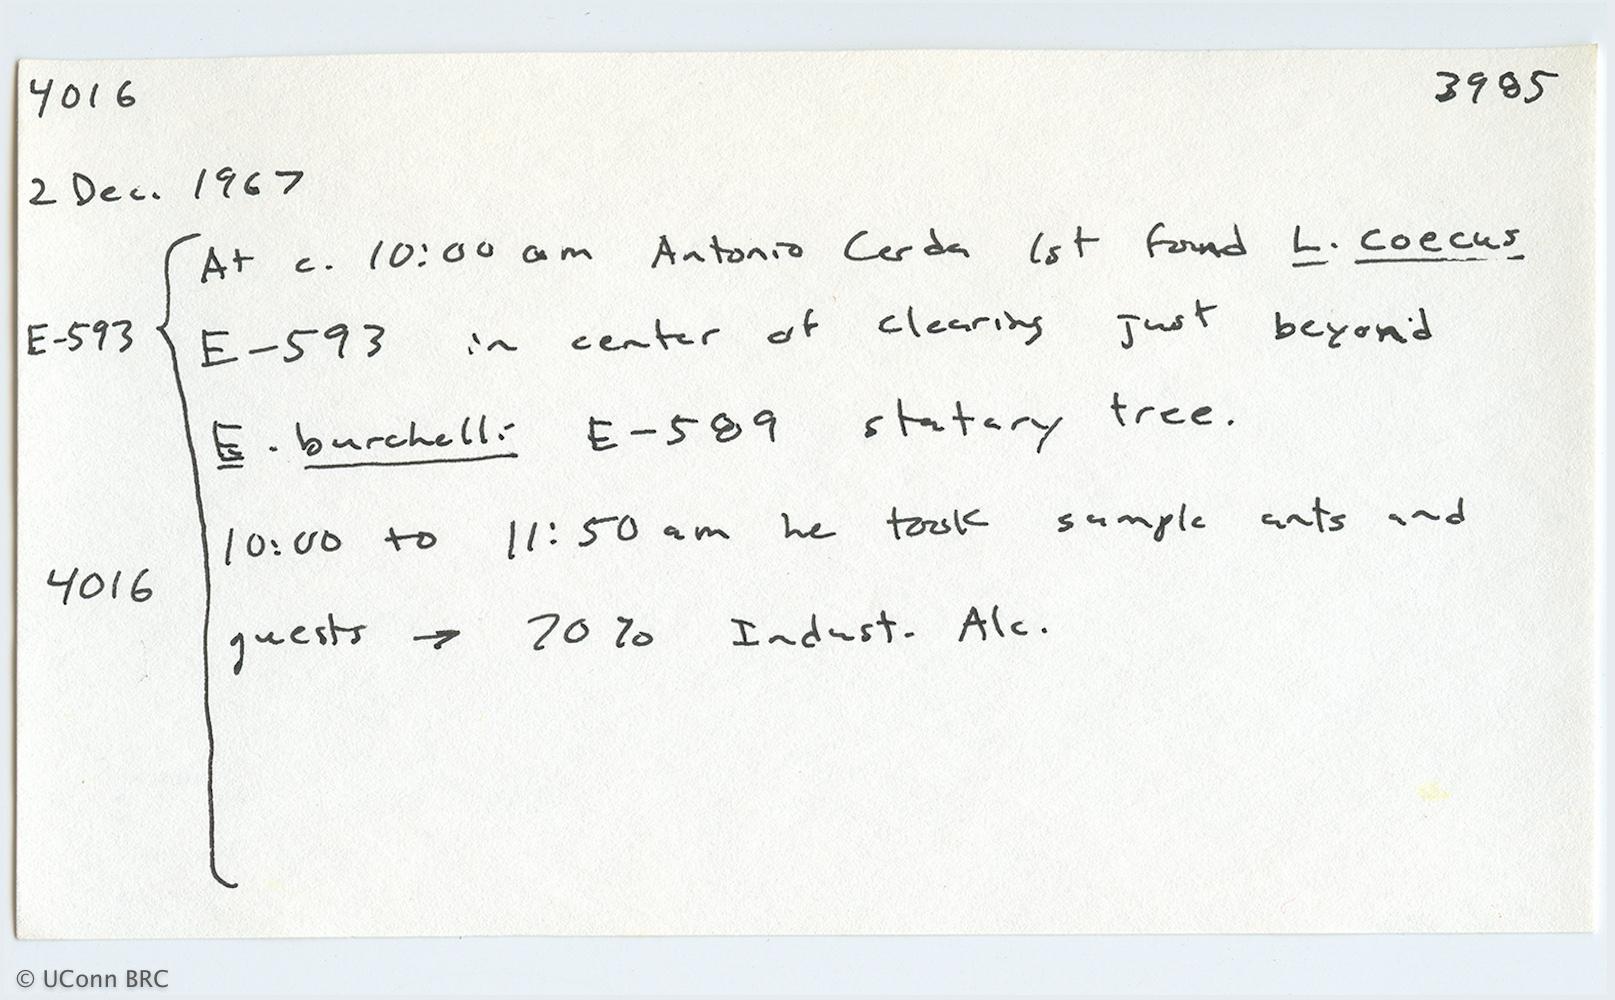 4016 3985
2 Dec. 1967
At c. 10:00 am Antonio Cerda 1st found L. coecus
E-593 E-593 in center of clearing just beyond
E. burchelli E-589 statary tree.
10:00 to 11:50 am he took sample ants and
4016
guests → 70% Indust. Alc.
© UConn BRC